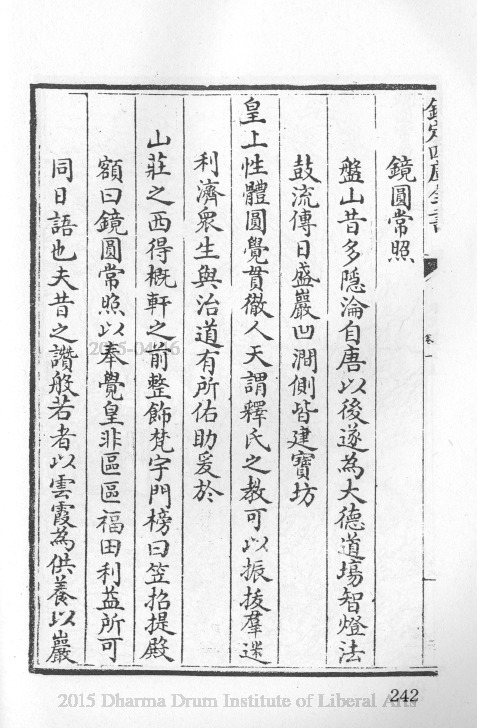 欽定四庫全書
卷一
鏡圓常照
盤山昔多隱淪自唐以後遂為大德道場智燈法
鼓流傳日盛巖凹澗側皆建寶坊
皇上性體圓覺貫徹人天謂釋氏之教可以振拔羣迷
利濟衆生與治道有所佑助爰於
山莊之西得概軒之前整飾梵宇門榜曰笠招提殿
額曰鏡圓常照以奉覺皇非區區福田利益所可
同日語也夫昔之讚般若者以雲霞為供養以巖
2015-04-16
242
2015 Dharma Drum Institute of Liberal Arts